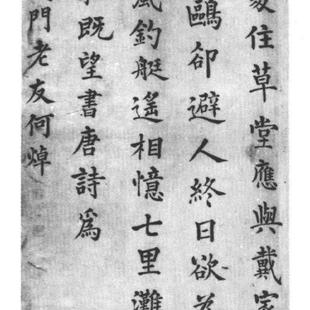 住草堂應與戴家
鷗卻避人終日欲
風釣艇遙相憶七里灘
既望書唐詩爲
門老友何焯